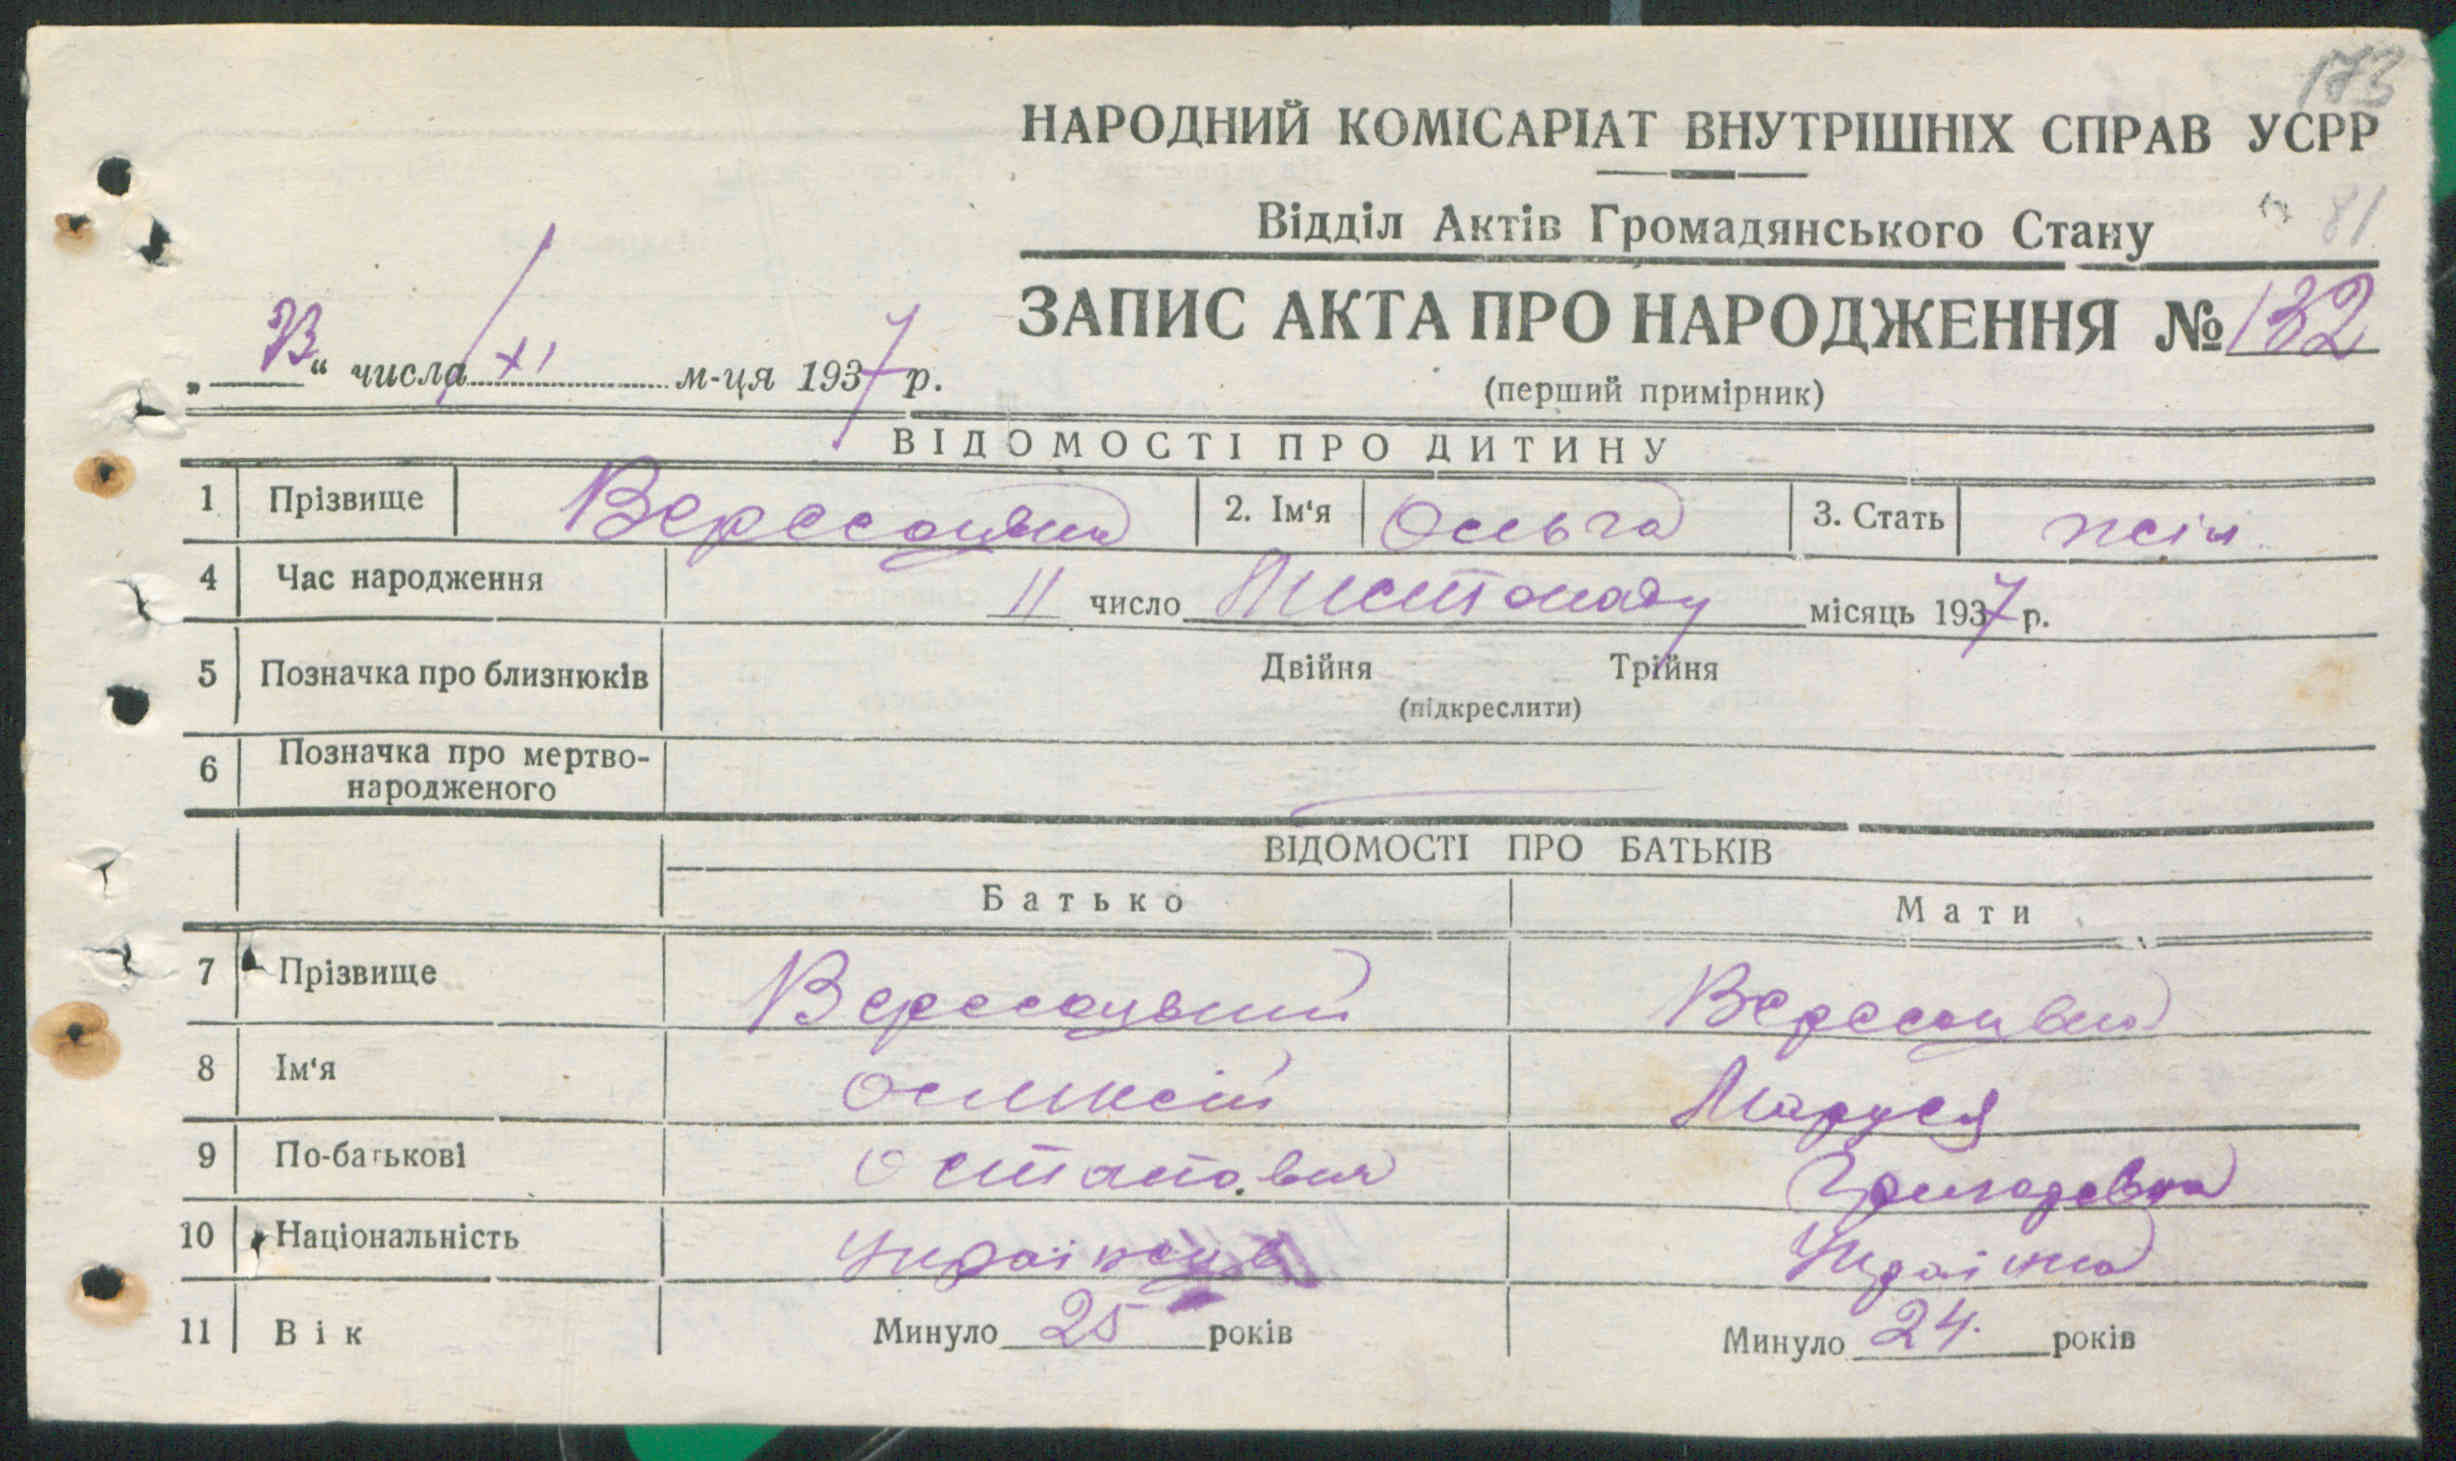 173
НАРОДНИЙ КОМІСАРІАТ ВНУТРІШНІХ СПРАВ УСРР
Відділ Актів Громадянського Стану
81
ЗАПИС АКТА ПРО НАРОДЖЕННЯ № 132
„ “ числа XI м-ця 1937 р.
(перший примірник)
ВІДОМОСТІ ПРО ДИТИНУ
1 Прізвище 2. Ім'я Ольга 3. Стать жін.
4 Час народження 11 число Листопаду місяць 1937 р.
5 Позначка про близнюків Двійня Трійня
(підкреслити)
6 Позначка про мертво-
народженого
ВІДОМОСТІ ПРО БАТЬКІВ
Батько Мати
7 Прізвище
8 Ім'я Маруся
9 По-батькові
10 Національність Українка
11 Вік Минуло 25 років Минуло 24. років